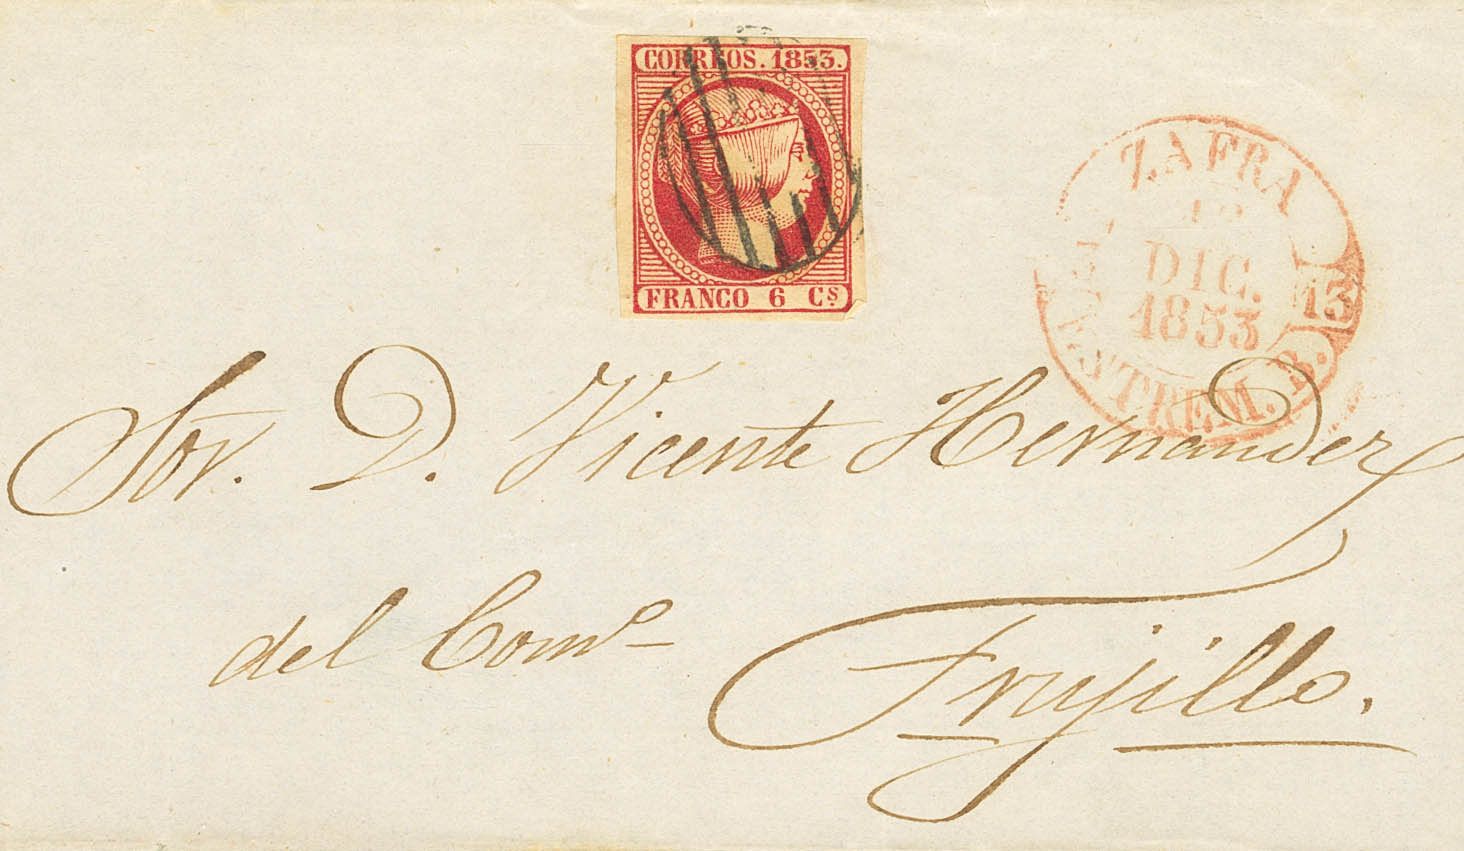 CORREOS. 1853.
FRANCO 6 Cs
ZAFRA
DIC.
1853
13
ESTREM. B.
Sor. D. Vicente Hernandez
del Como
Trujillo.